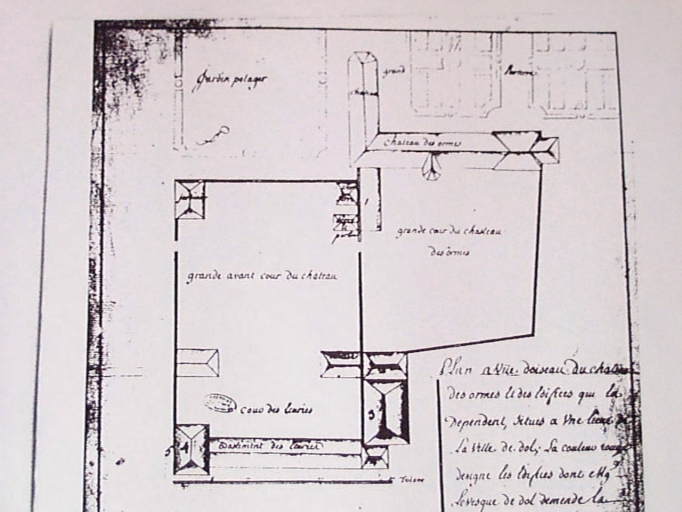 Jardin potager
grand
Parterre
chateau des ormes
grande cour du chasteau
des ormes
grande avant cour du chateau
cour des Ecuries
Bastiment des Ecuries
Toises
Plan a Vüe doiseau du chateau
des ormes & des Edifices qui la
Dependent, situes a vne lieue de
La Ville de dol, La couleur rouge
designe les Edifices dont
Levesque de dol demande la